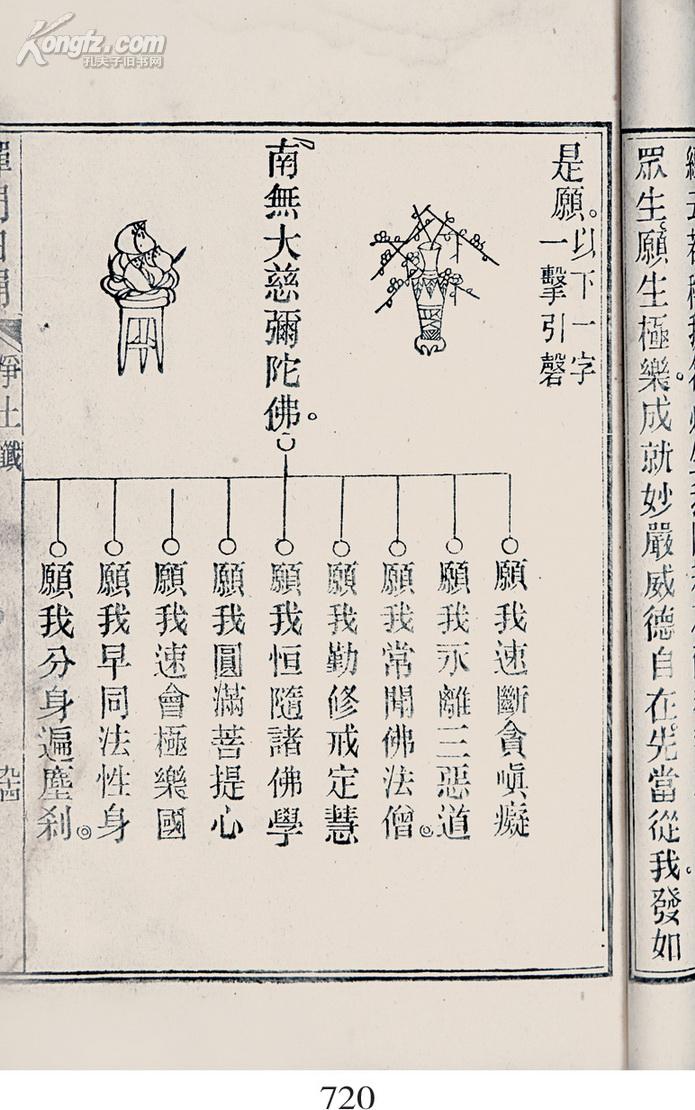 Kongfz.com
孔夫子旧书网
眾生。願生極樂。成就妙嚴威德自在。先當從我發如
是願。以下一字
一擊引磬
南無大慈彌陀佛。
願我速斷貪嗔癡
願我永離三惡道
願我常聞佛法僧
願我勤修戒定慧
願我恒隨諸佛學
願我圓滿菩提心
願我速會極樂國
願我早同法性身
願我分身遍塵刹
淨土懺
九十四
720